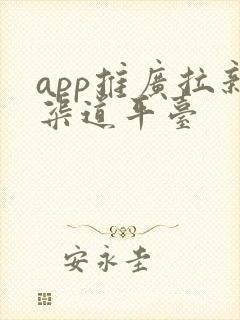 app推廣拉新
渠道平臺
安永圭